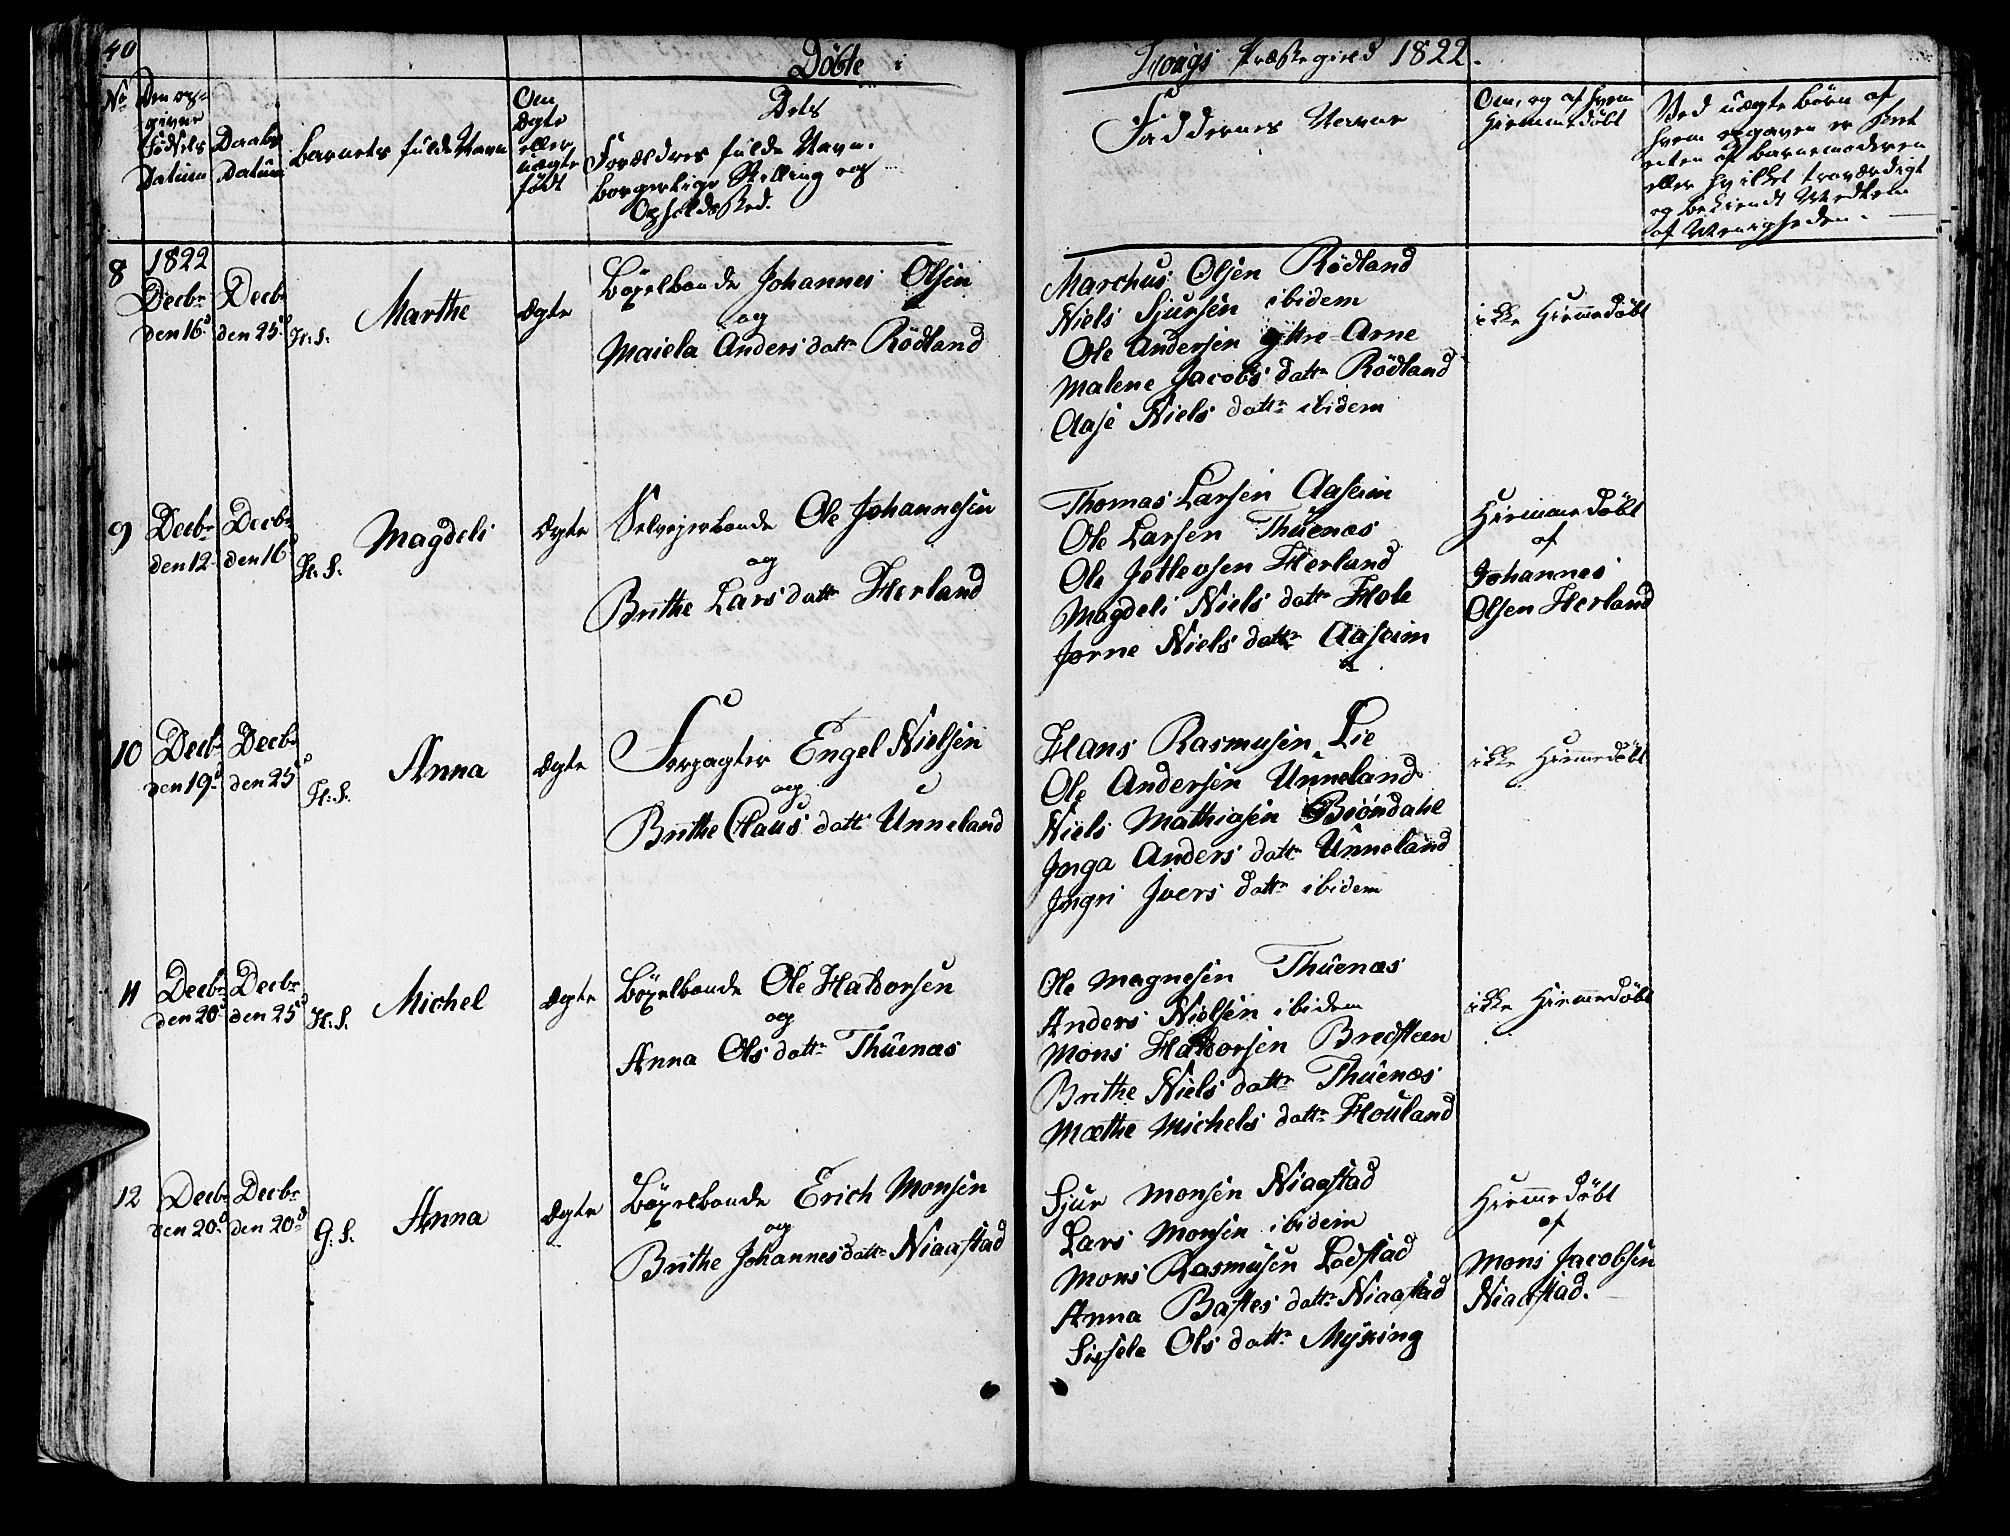 40
Døbte i
Hougs Præstegield 1822.
No
Den op-
givne
Fødsels
Datum
Daabs
Datum
Barnets fulde Navn
Om
Ægte
eller
uægte
født
Dets
Forældres fulde Navn,
borgerlige Stilling og
Opholdssted.
Faddernes Navne
Om, og af hvem
Hiemmedøbt
Ved uægte børn af
hvem opgaven er skeet
enten af barnemoderen
eller hvilket troværdigt
og bekiendt Medlem
af Menigheden.
8
1822
Decbr
den 16d
Decbr
den 25d
H. S.
Marthe
Ægte
Böxelbonde Johannes Olsen
og
Maiela Anders dattr Rödland
Marchus Olsen Rödland
Niels Sjursen ibidem
Ole Andersen yttre Arne
Malene Jacobs dattr Rödland
Aase Niels dattr ibidem
ikke Hiemmedøbt
9
Decbr
den 12
Decbr
den 16d
H. S.
Magdeli
Ægte
Selvejerbonde Ole Johannesen
og
Brithe Lars dattr Herland
Thomas Larsen Aaseim
Ole Larsen Thuenæs
Ole Jetlevsen Herland
Magdeli Niels dattr Hole
Jorne Niels dattr Aaseim
Hiemmedøbt
af
Johannes
Olsen Herland
10
Decbr
den 19d
Decbr
den 25d
H. S.
Anna
Ægte
Forpagter Engel Nielsen
og
Brithe Claus dattr Unneland
Hans Rasmusen Lie
Ole Andersen Unneland
Niels Mathiasen Biöndahl
Inga Anders dattr Unneland
Ingri Ivers dattr ibidem
ikke Hiemmedøbt
11
Decbr
den 20d
Decbr
den 25d
H. S.
Michel
Ægte
Böxelbonde Ole Haldorsen
og
Anna Ols dattr Thuenæs
Ole Magnesen Thuenæs
Anders Nielsen ibidem
Mons Haldorsen Bredsteen
Brithe Niels dattr Thuenæs
Mæthe Michels dattr Houland
ikke Hiemmedøbt
12
Decbr
den 20d
Decbr
den 20d
G. S.
Anna
Ægte
Böxelbonde Erich Monsen
og
Brithe Johannes dattr Niaastad
Sjur Monsen Niaastad
Lars Monsen ibidem
Mons Rasmusen Lodstad
Anna Bastes dattr Niaastad
Sissele Ols dattr Myking
Hiemmedøbt
af
Mons Jacobsen
Niaastad.